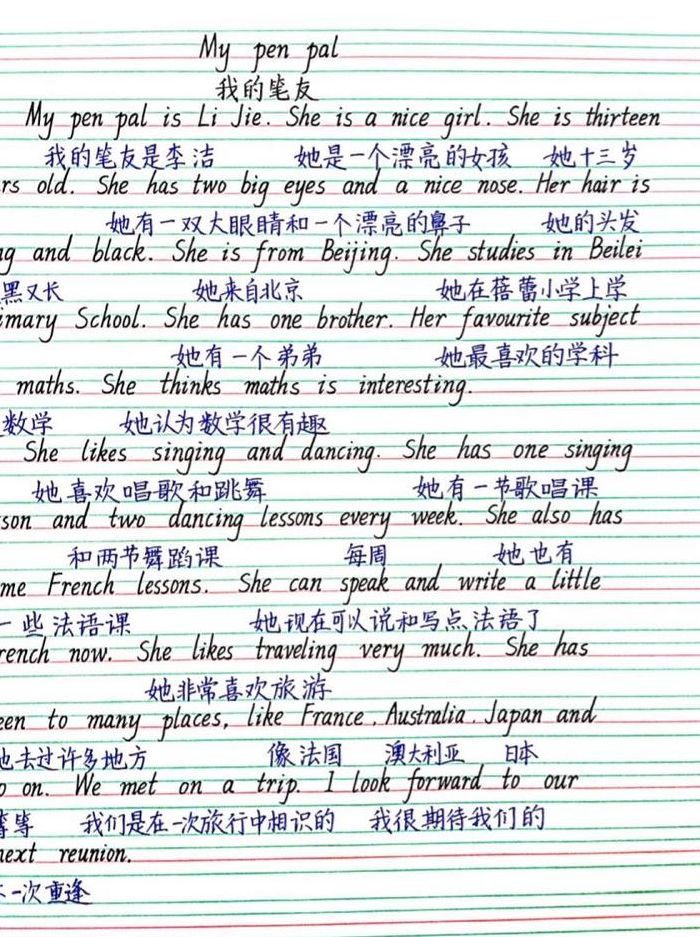 My pen pal
我的笔友
My pen pal is Li Jie. She is a nice girl. She is thirteen
我的笔友是李洁 她是一个漂亮的女孩 她十三岁
rs old. She has two big eyes and a nice nose. Her hair is
她有一双大眼睛和一个漂亮的鼻子 她的头发
g and black. She is from Beijing. She studies in Beilei
黑又长 她来自北京 她在蓓蕾小学上学
imary School. She has one brother. Her favourite subject
她有一个弟弟 她最喜欢的学科
maths. She thinks maths is interesting.
数学 她认为数学很有趣
She likes singing and dancing. She has one singing
她喜欢唱歌和跳舞 她有一节歌唱课
son and two dancing lessons every week. She also has
和两节舞蹈课 每周 她也有
me French lessons. She can speak and write a little
一些法语课 她现在可以说和写点法语了
rench now. She likes traveling very much. She has
她非常喜欢旅游
een to many places, like France, Australia, Japan and
她去过许多地方 像法国 澳大利亚 日本
o on. We met on a trip. I look forward to our
等等 我们是在一次旅行中相识的 我很期待我们的
next reunion.
一次重逢